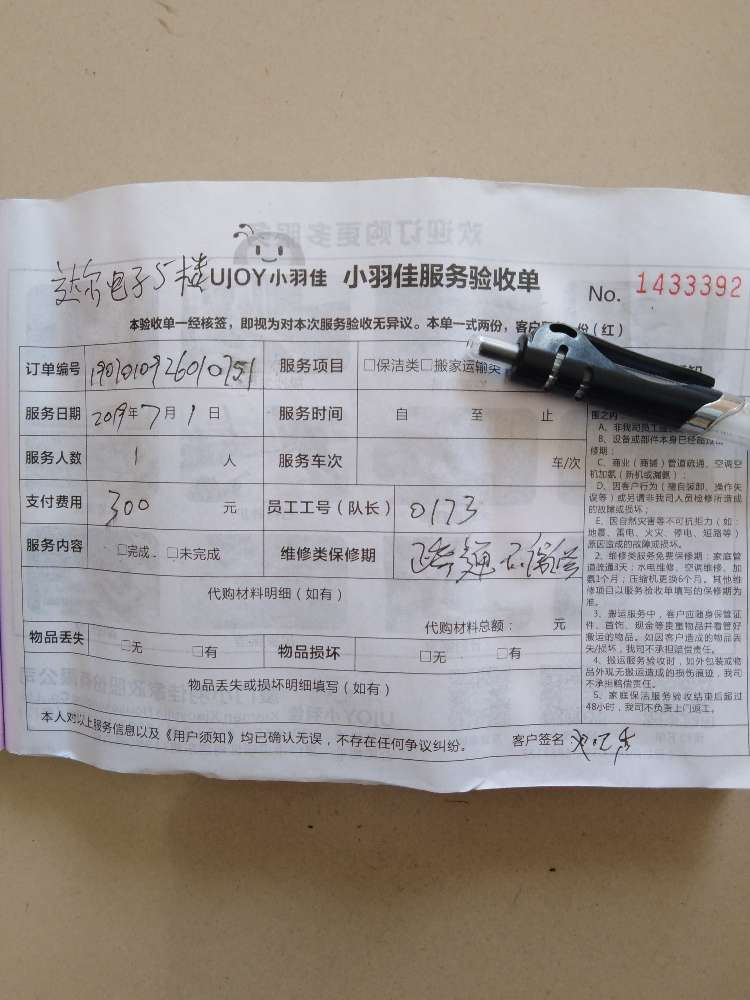 欢迎订购更多服务
达尔电子5楼
UJOY小羽佳 小羽佳服务验收单
No. 1433392
本验收单一经核签，即视为对本次服务验收无异议。本单一式两份，客户 份（红）
订单编号 服务项目 □保洁类□搬家运输类
服务日期 2019年7月1日 服务时间 自 至 止
服务人数 1 人 服务车次 车/次
支付费用 300 元 员工工号（队长） 0173
服务内容 □完成 □未完成 维修类保修期 疏通不保
代购材料明细（如有）
代购材料总额： 元
物品丢失 □无 □有 物品损坏 □无 □有
物品丢失或损坏明细填写（如有）
本人对以上服务信息以及《用户须知》均已确认无误，不存在任何争议纠纷。 客户签名
围之内
A、非我司员工
B、设备或部件本身已经
修期；
C、商业（商铺）管道疏通、空调空
机加氟（新机或漏氟）；
D、因客户行为（随自装卸、操作失
误等）或另请非我司人员检修所造成
的故障或损坏；
E、因自然灾害等不可抗拒力（如：
地震、雷电、火灾、停电、短路等）
原因造成的故障或损坏。
2、维修类服务免费保修期：家庭管
道疏通3天；水电维修、空调维修、加
氟1个月；压缩机更换6个月。其他维
修项目以服务验收单填写的保修期为
准。
3、搬运服务中，客户应随身保管证
件、首饰、现金等贵重物品并看管好
搬运的物品。如因客户造成的物品丢
失/损坏，我司不承担赔偿责任。
4、搬运服务验收时，如外包装或物
品外观无搬运造成的损伤痕迹，我司
不承担赔偿责任。
5、家庭保洁服务验收结束后超过
48小时，我司不负责上门返工。